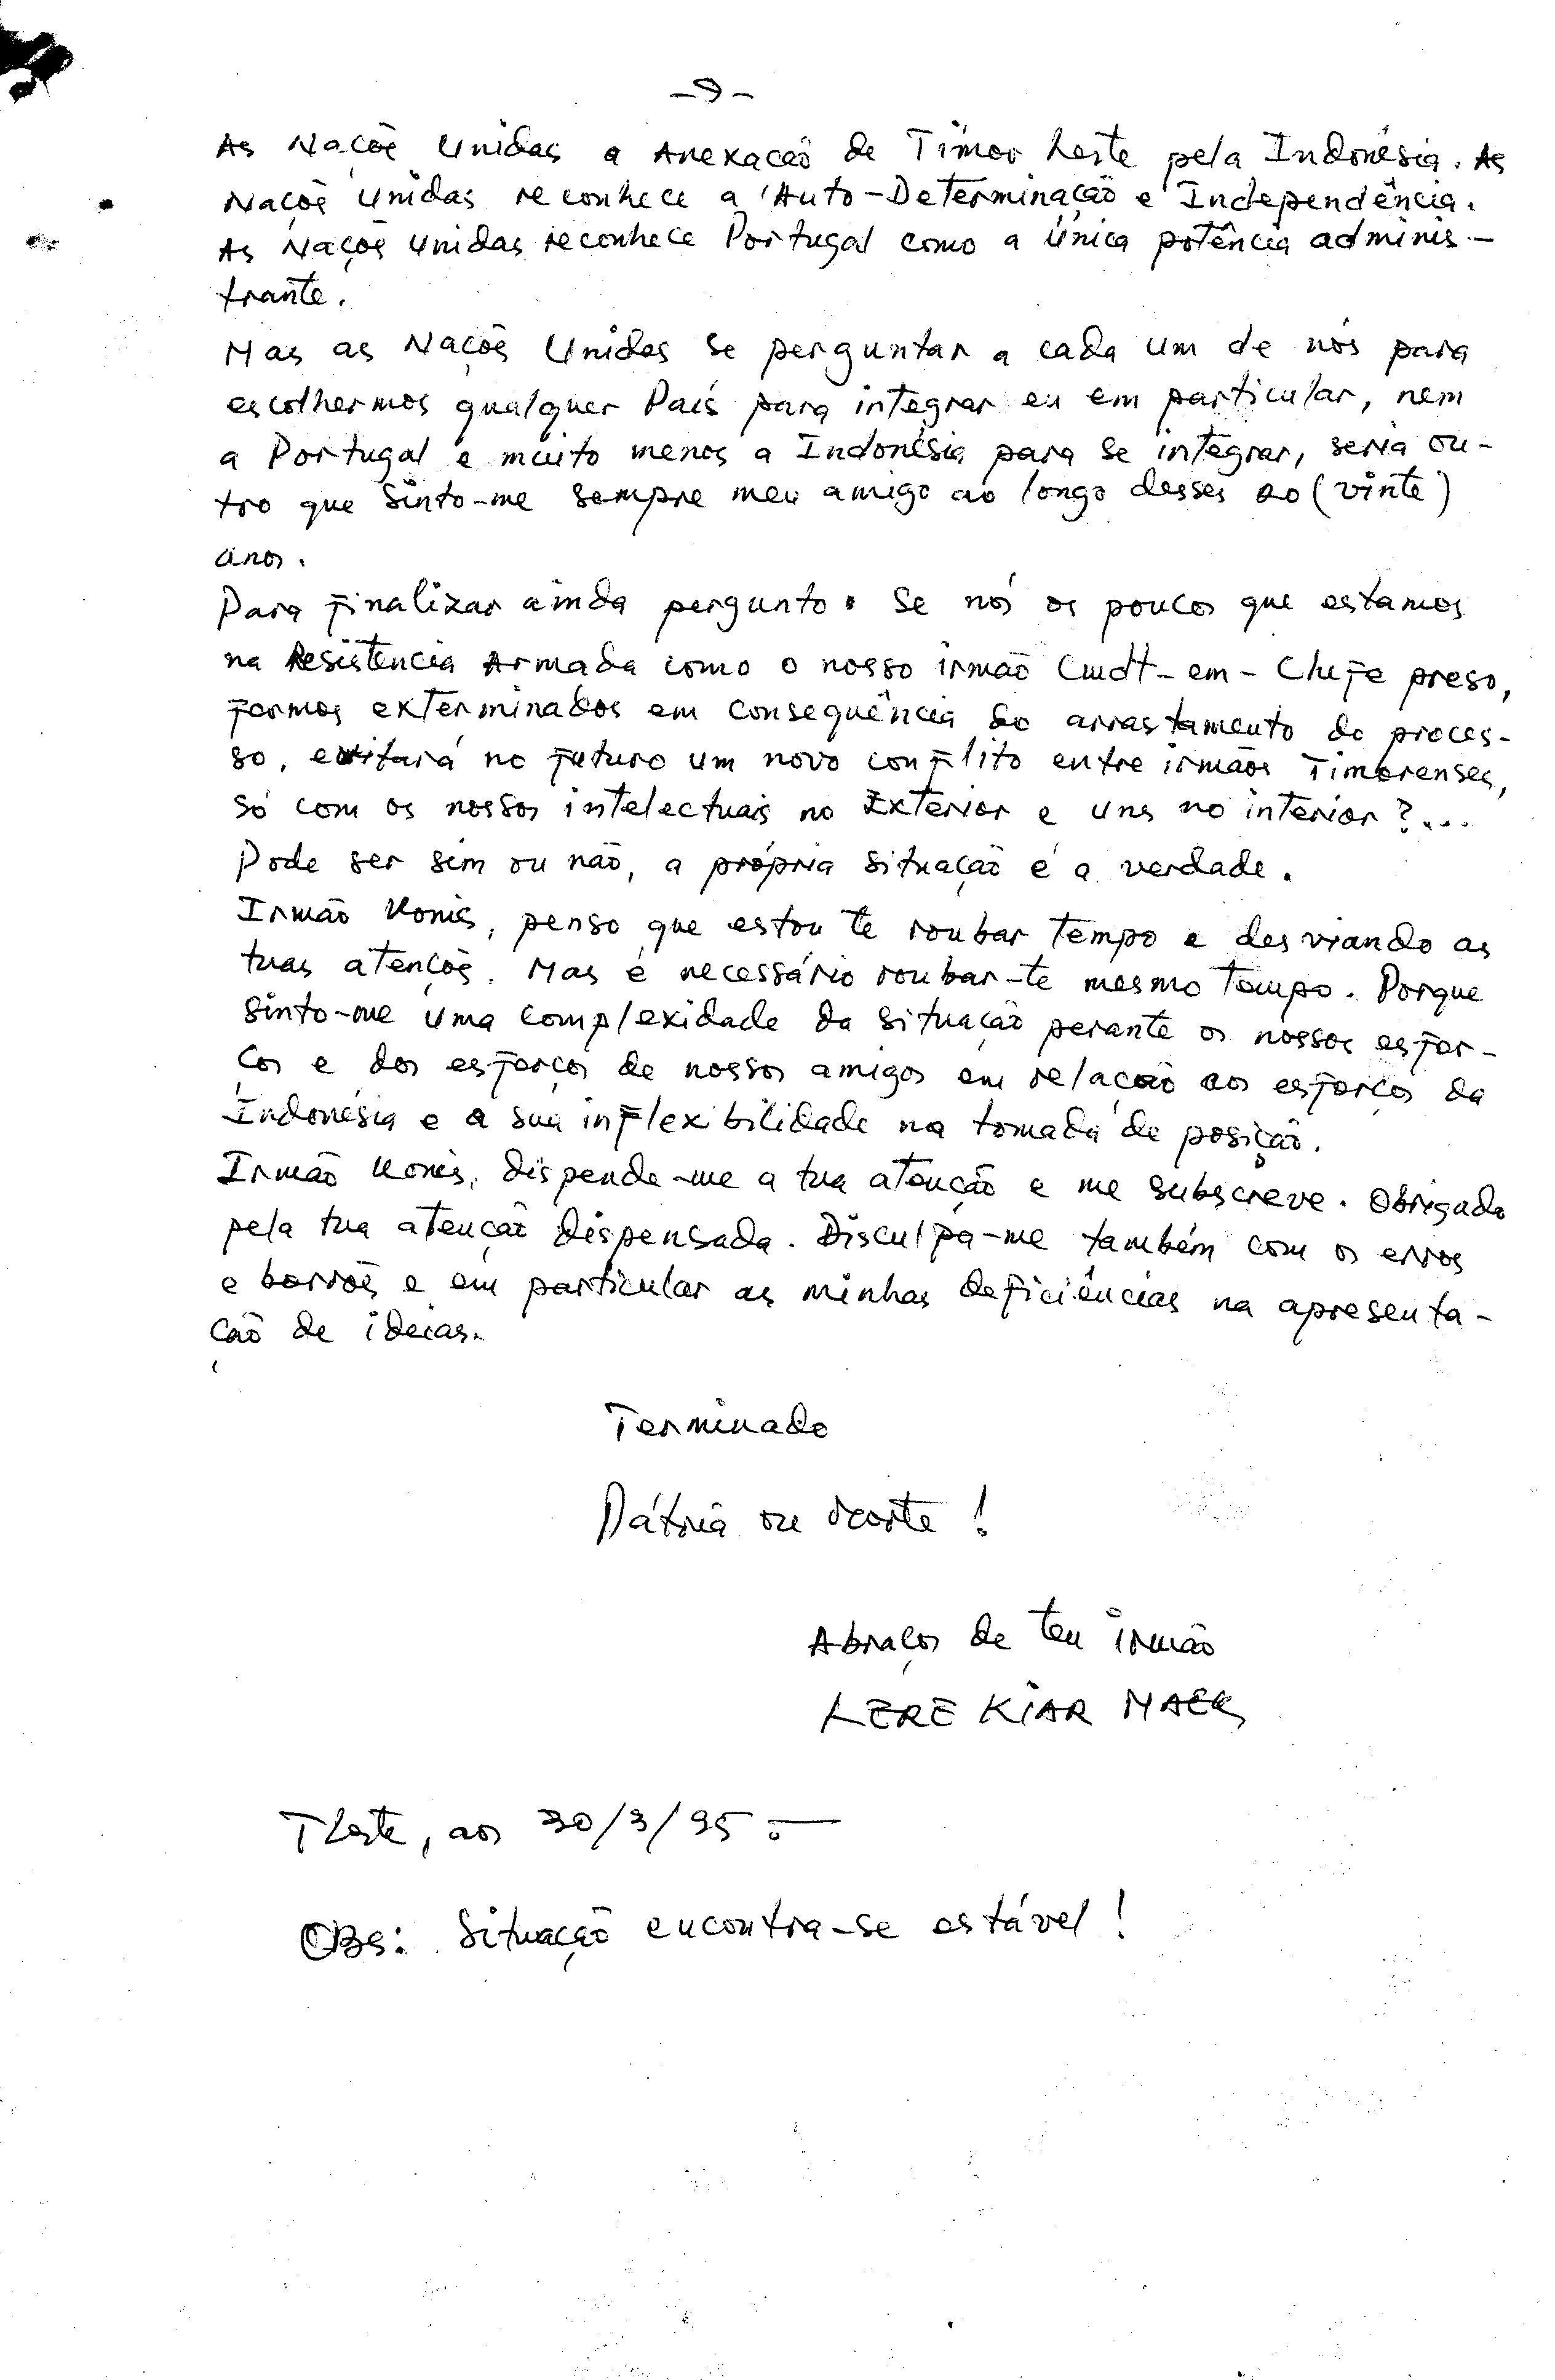 -9-
As Naçõe Unidas a Anexação de Timor Leste pela Indonésia. As
Naçõe Unidas reconhece a Auto-Determinação e Independência.
As Naçõs Unidas reconhece Portugal como a única potência adminis-
trante.
Mas as Naçõs Unidas se perguntar a cada um de nós para
escolhermos qualquer País para integrar eu em particular, nem
a Portugal e muito menos a Indonésia para se integrar, seria ou-
tro que sinto-me sempre meu amigo ao longo desses 20 (vinte)
anos.
Para finalizar ainda pergunto: Se nós os poucos que estamos
na Resistência Armada como o nosso irmão Cmdt-em-Chefe preso,
formos exterminados em consequência do arrastamento do proces-
so, evitará no futuro um novo conflito entre irmãos Timorenses,
só com os nossos intelectuais no Exterior e uns no interior?...
Pode ser sim ou não, a própria situação é a verdade.
Irmão Konis, penso que estou te roubar tempo e desviando as
tuas atençõs. Mas é necessário roubar-te mesmo tempo. Porque
sinto-me uma complexidade da situação perante os nossos esfor-
ços e dos esforços de nossos amigos em relação aos esforços da
Indonésia e a sua inflexibilidade na tomada de posição.
Irmão Konis, dispende-me a tua atenção e me subscreve. Obrigado
pela tua atenção dispensada. Disculpa-me também com os erros
e borrõs e em particular as minhas deficiências na apresenta-
ção de ideias.
Terminado
Pátria ou Morte!
Abraços de teu irmão
LERE KIAR MAEK
TLeste, aos 30/3/95.-
OBs: Situação encontra-se estável!